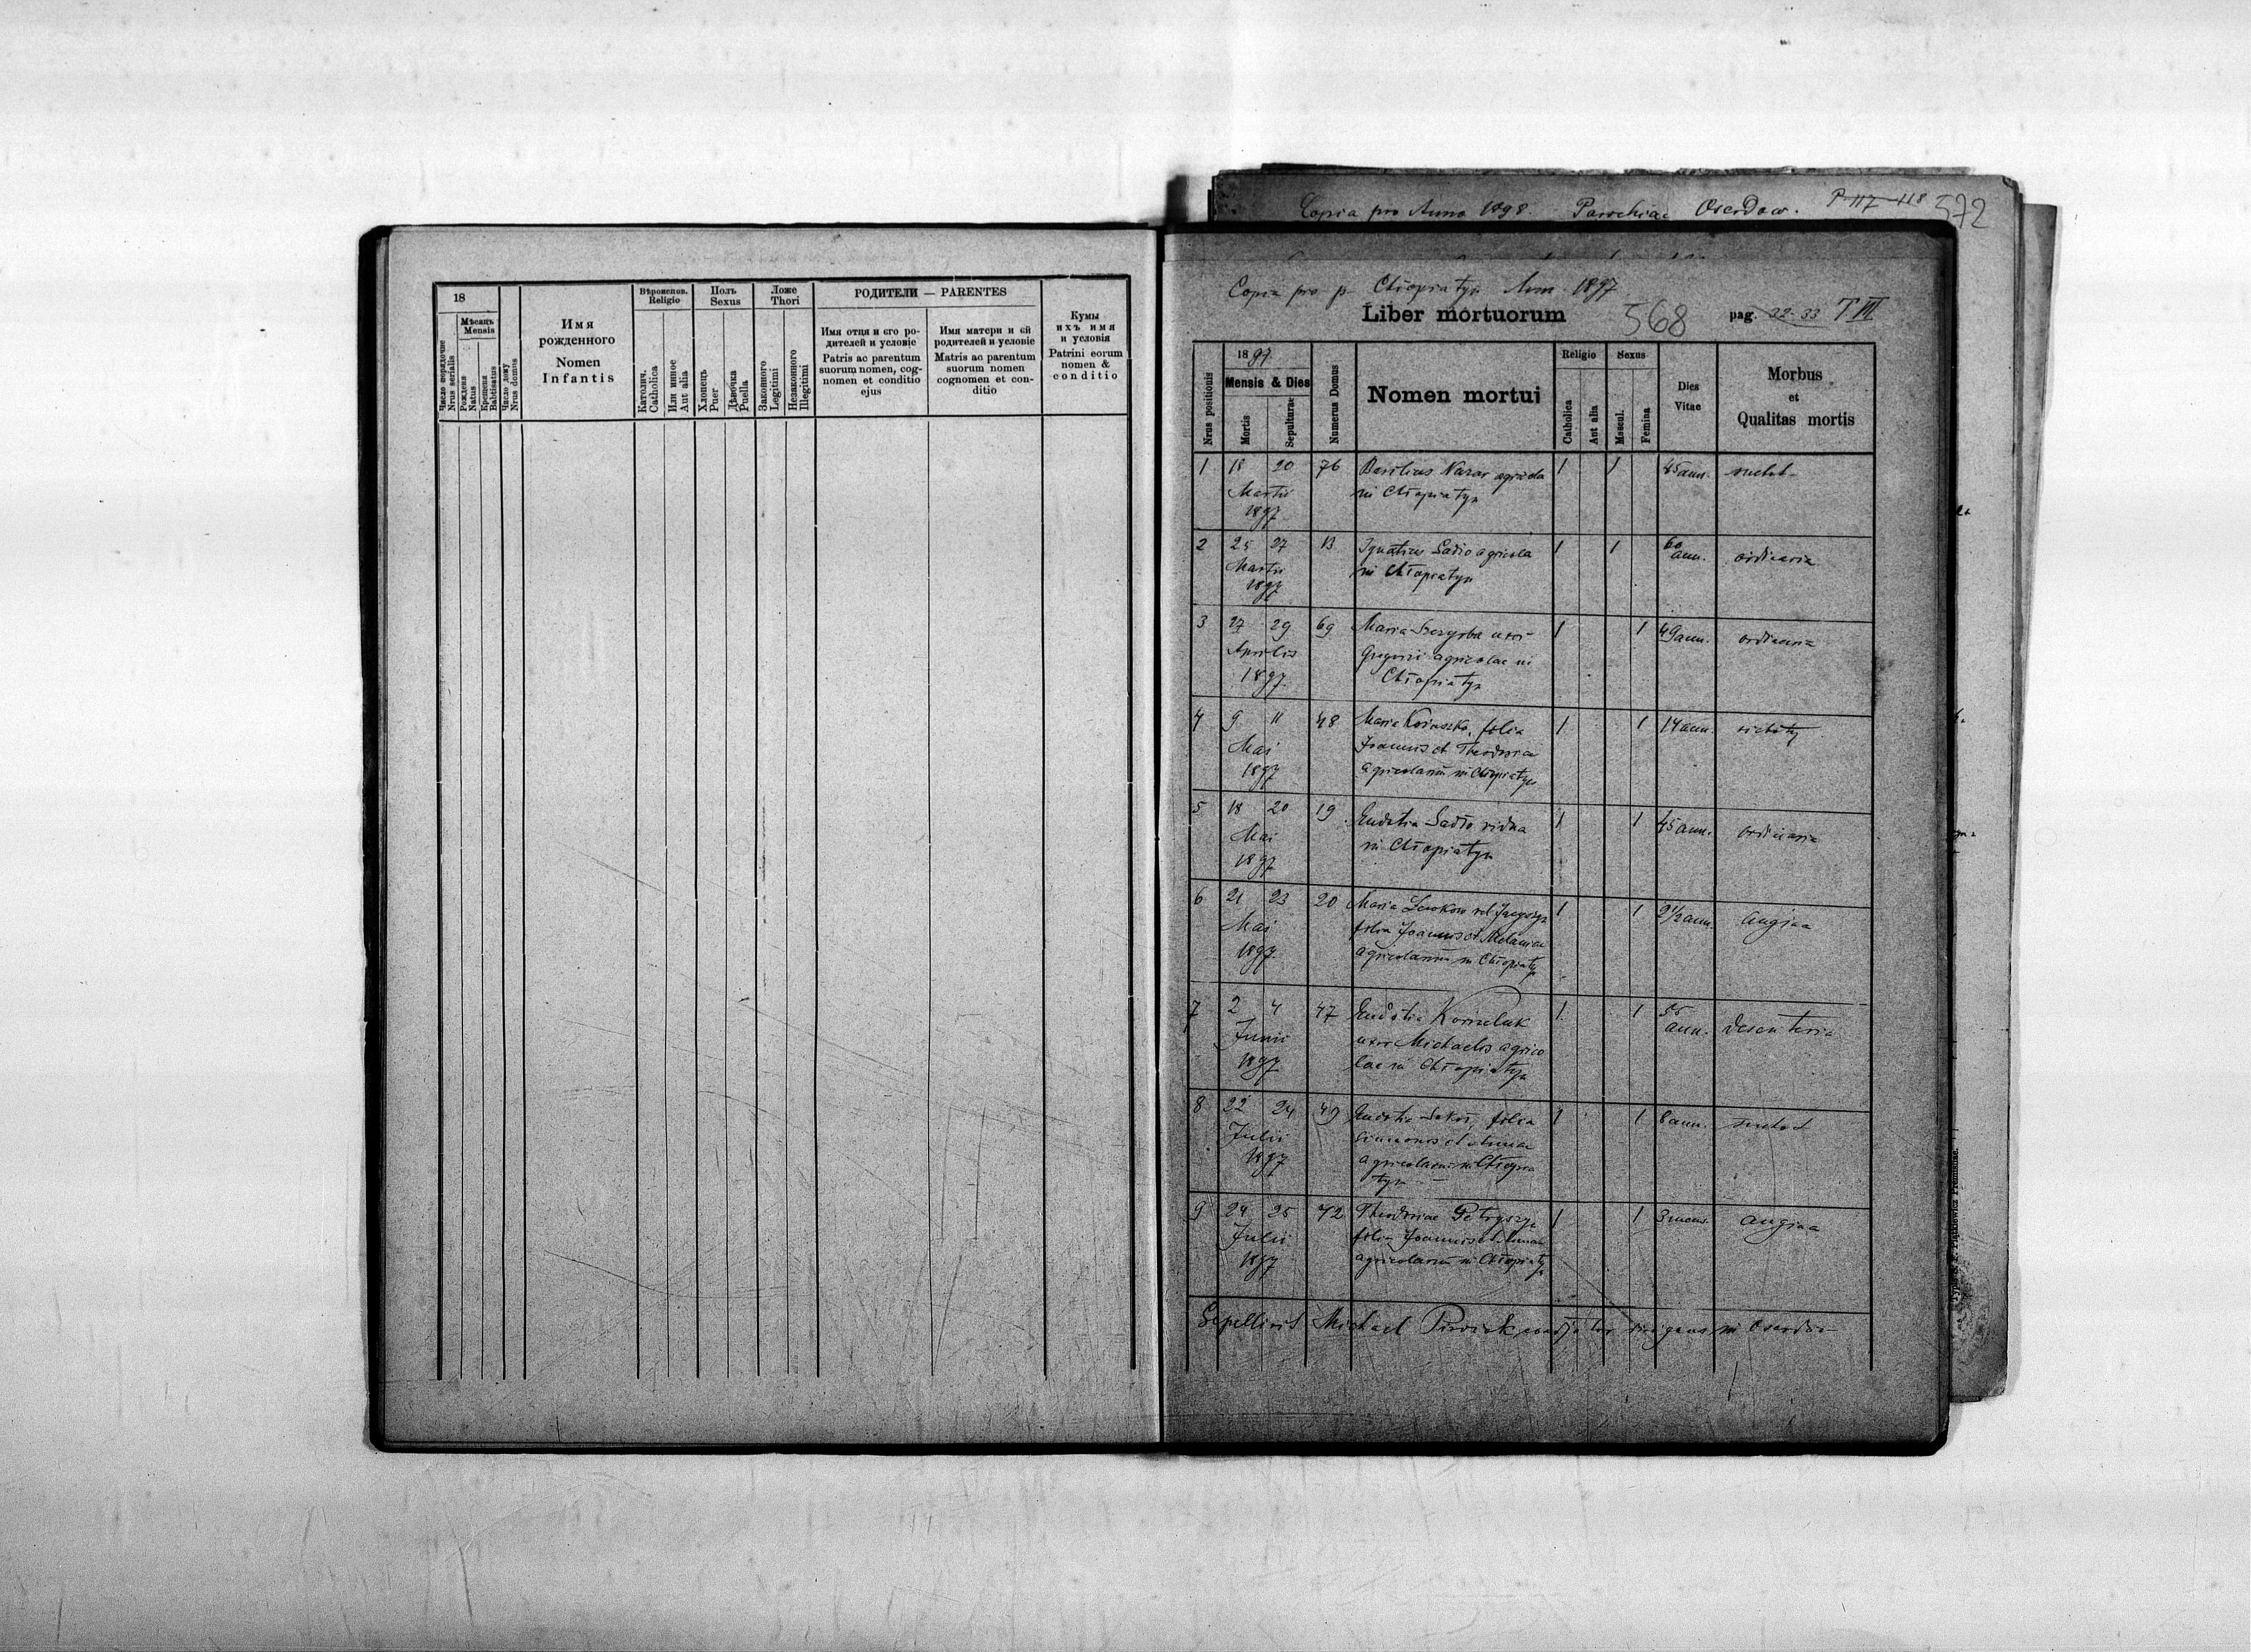 Copia pro Anno 1898. Parochiae Oserdow. P 117-118 572
18
Число порядочне
Nrus serialis
Мѣсяцъ
Mensis
Рожденя
Natus
Крещеня
Babtisatus
Число дому
Nrus domus
Имя
рожденного
Nomen
Infantis
Вѣроиспов.
Religio
Католич.
Catholica
Или инное
Aut alia
Полъ
Sexus
Хлопець
Puer
Дѣвочка
Puella
Ложе
Thori
Законного
Legitimi
Незаконного
Illegitimi
РОДИТЕЛИ — PARENTES
Имя отця и єго ро-
дителей и условіє
Patris ac parentum
suorum nomen, cog-
nomen et conditio
ejus
Имя матери и єй
родителей и условіє
Matris ac parentum
suorum nomen
cognomen et con-
ditio
Кумы
ихъ имя
и условія
Patrini eorum
nomen &
conditio
Copia pro p. Chłopiatyn Ann. 1897
Liber mortuorum 568 pag. 22-33 T III
Nrus positionis
1897
Mensis & Dies
Mortis
Sepulturae
Numerus Domus
Nomen mortui
Religio
Catholica
Aut alia
Sexus
Mascul.
Femina
Dies
Vitae
Morbus
et
Qualitas mortis
1 18 20 76 Basilius Nazar agricola 1 1 45 ann.
Martii in Chłopiatyn
1897
2 25 27 13 Ignatius Sadło agricola 1 1 60 ann. ordinaria
Martii in Chłopiatyn
1897
3 27 29 69 Maria Szczyrba uxor 1 1 49 ann. ordinaria
Aprilis Gregorii agricolae in
1897 Chłopiatyn
4 9 11 48 Maria filia 1 1 14 ann.
Mai Joannis et Theodorae
1897 agricolarum in Chłopiatyn
5 18 20 19 Eudotia Sadło vidua 1 1 45 ann. ordinaria
Mai in Chłopiatyn
1897
6 21 23 20 Maria vel 1 1 2 1/2 ann. angina
Mai filia Joannis et Melaniae
1897 agricolarum in Chłopiatyn
7 2 4 47 Eudotia Korneluk 1 1 55 ann. desenteria
Junii uxor Michaelis agrico
1897 lae in Chłopiatyn
8 22 24 49 Eudotia filia 1 1 8 ann.
Julii Simeonis et Annae
1897 agricolarum in Chłopia
tyn
9 24 25 72 Theodorae 1 1 3 mens. angina
Julii filia Joannis et Annae
1897 agricolarum in Chłopiatyn
Sepellivit Michael in Oserdow